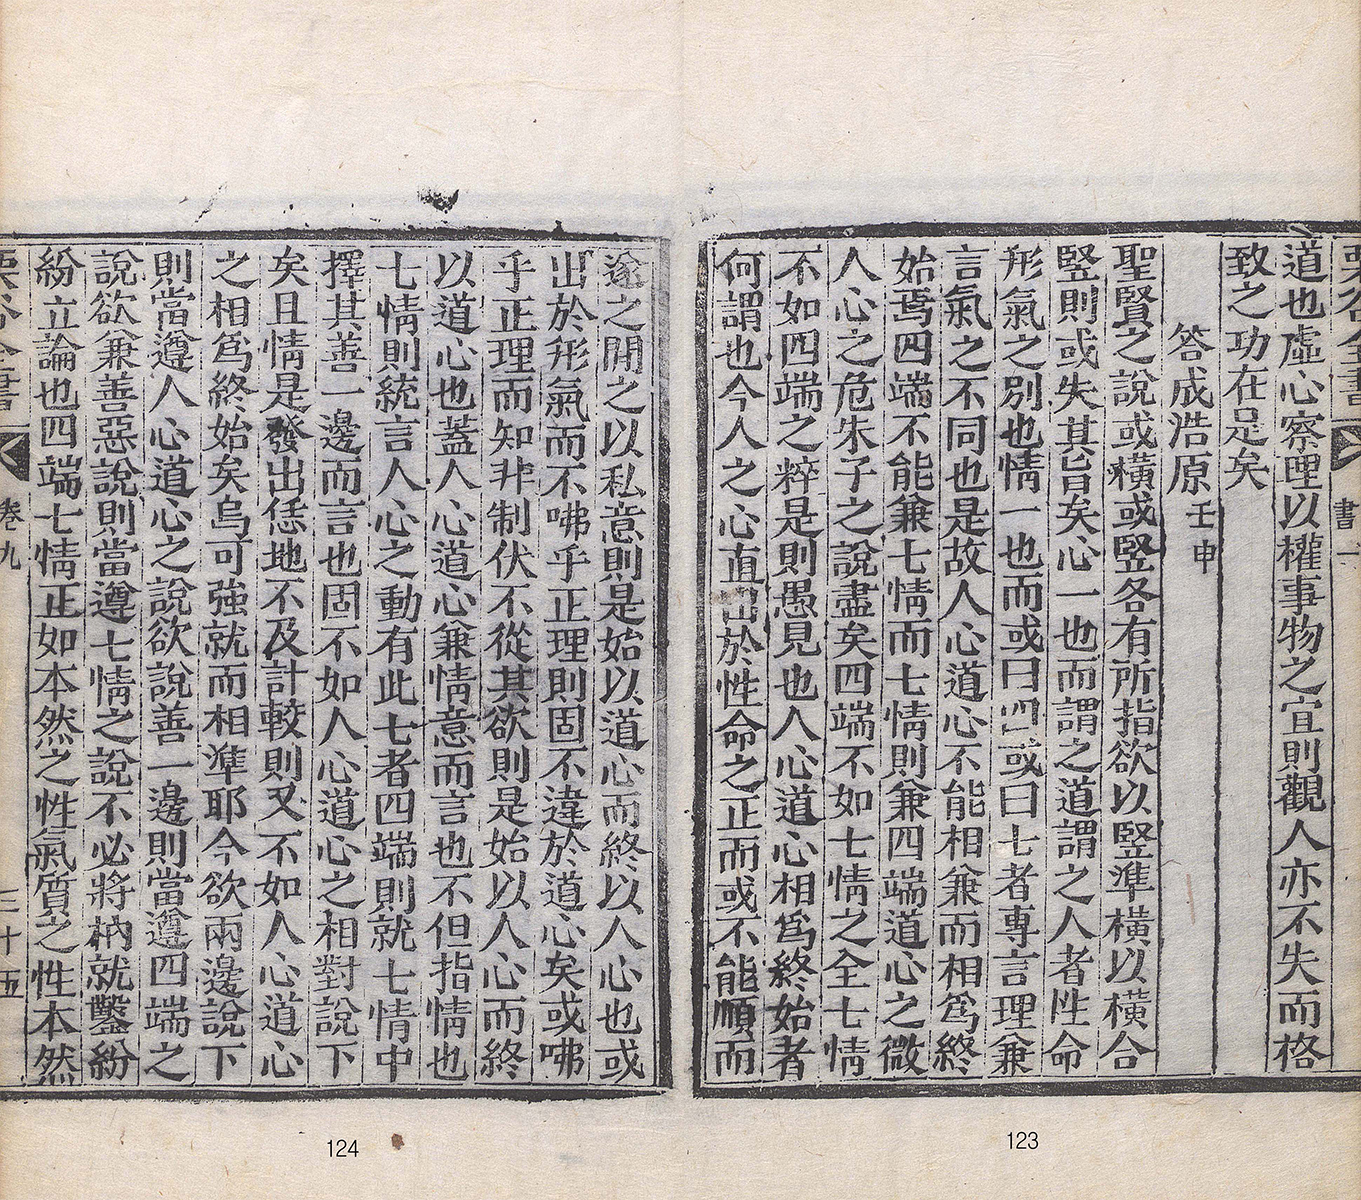 栗谷全書
書一
道也虛心察理以權事物之宜則觀人亦不失而格
致之功在是矣
答成浩原 壬申
聖賢之說或橫或竪各有所指欲以竪準橫以橫合
竪則或失其旨矣心一也而謂之道謂之人者性命
形氣之別也情一也而或曰四或曰七者專言理兼
言氣之不同也是故人心道心不能相兼而相爲終
始焉四端不能兼七情而七情則兼四端道心之微
人心之危朱子之說盡矣四端不如七情之全七情
不如四端之粹是則愚見也人心道心相爲終始者
何謂也今人之心直出於性命之正而或不能順而
遂之閒之以私意則是始以道心而終以人心也或
出於形氣而不咈乎正理則固不違於道心矣或咈
乎正理而知非制伏不從其欲則是始以人心而終
以道心也蓋人心道心兼情意而言也不但指情也
七情則統言人心之動有此七者四端則就七情中
擇其善一邊而言也固不如人心道心之相對說下
矣且情是發出恁地不及計較則又不如人心道心
之相爲終始矣烏可強就而相準耶今欲兩邊說下
則當遵人心道心之說欲說善一邊則當遵四端之
說欲兼善惡說則當遵七情之說不必將枘就鑿紛
紛立論也四端七情正如本然之性氣質之性本然
栗谷全書
卷九
三十五
123
124